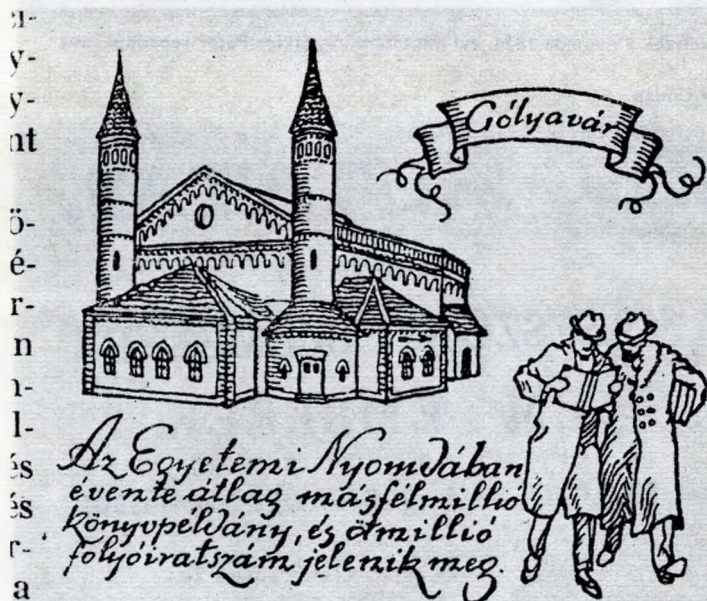 Gólyavár
Az Egyetemi Nyomdában
évente átlag másfélmillió
könyvpéldány, és ötmillió
folyóiratszám jelenik meg.
y-
y-
nt
ö-
é-
r-
n
l-
és
és
r-
a